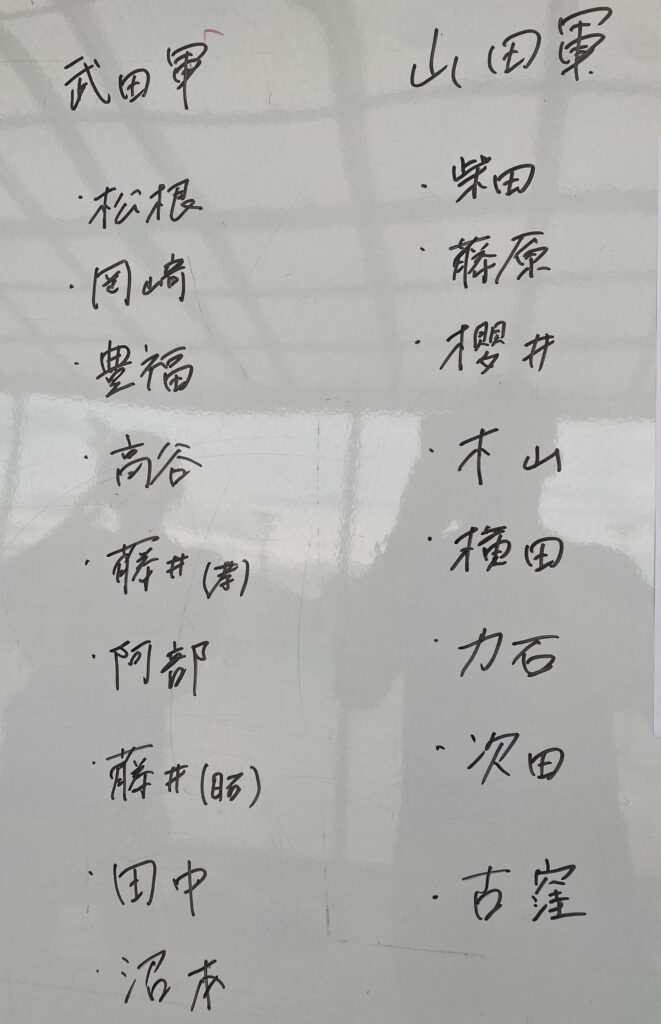 武田軍
・松根
・岡崎
・豊福
・高谷
・藤井(孝)
・阿部
・藤井
・田中
・沼本
山田軍
・柴田
・藤原
・櫻井
・木山
・横田
・力石
・次田
・古窪